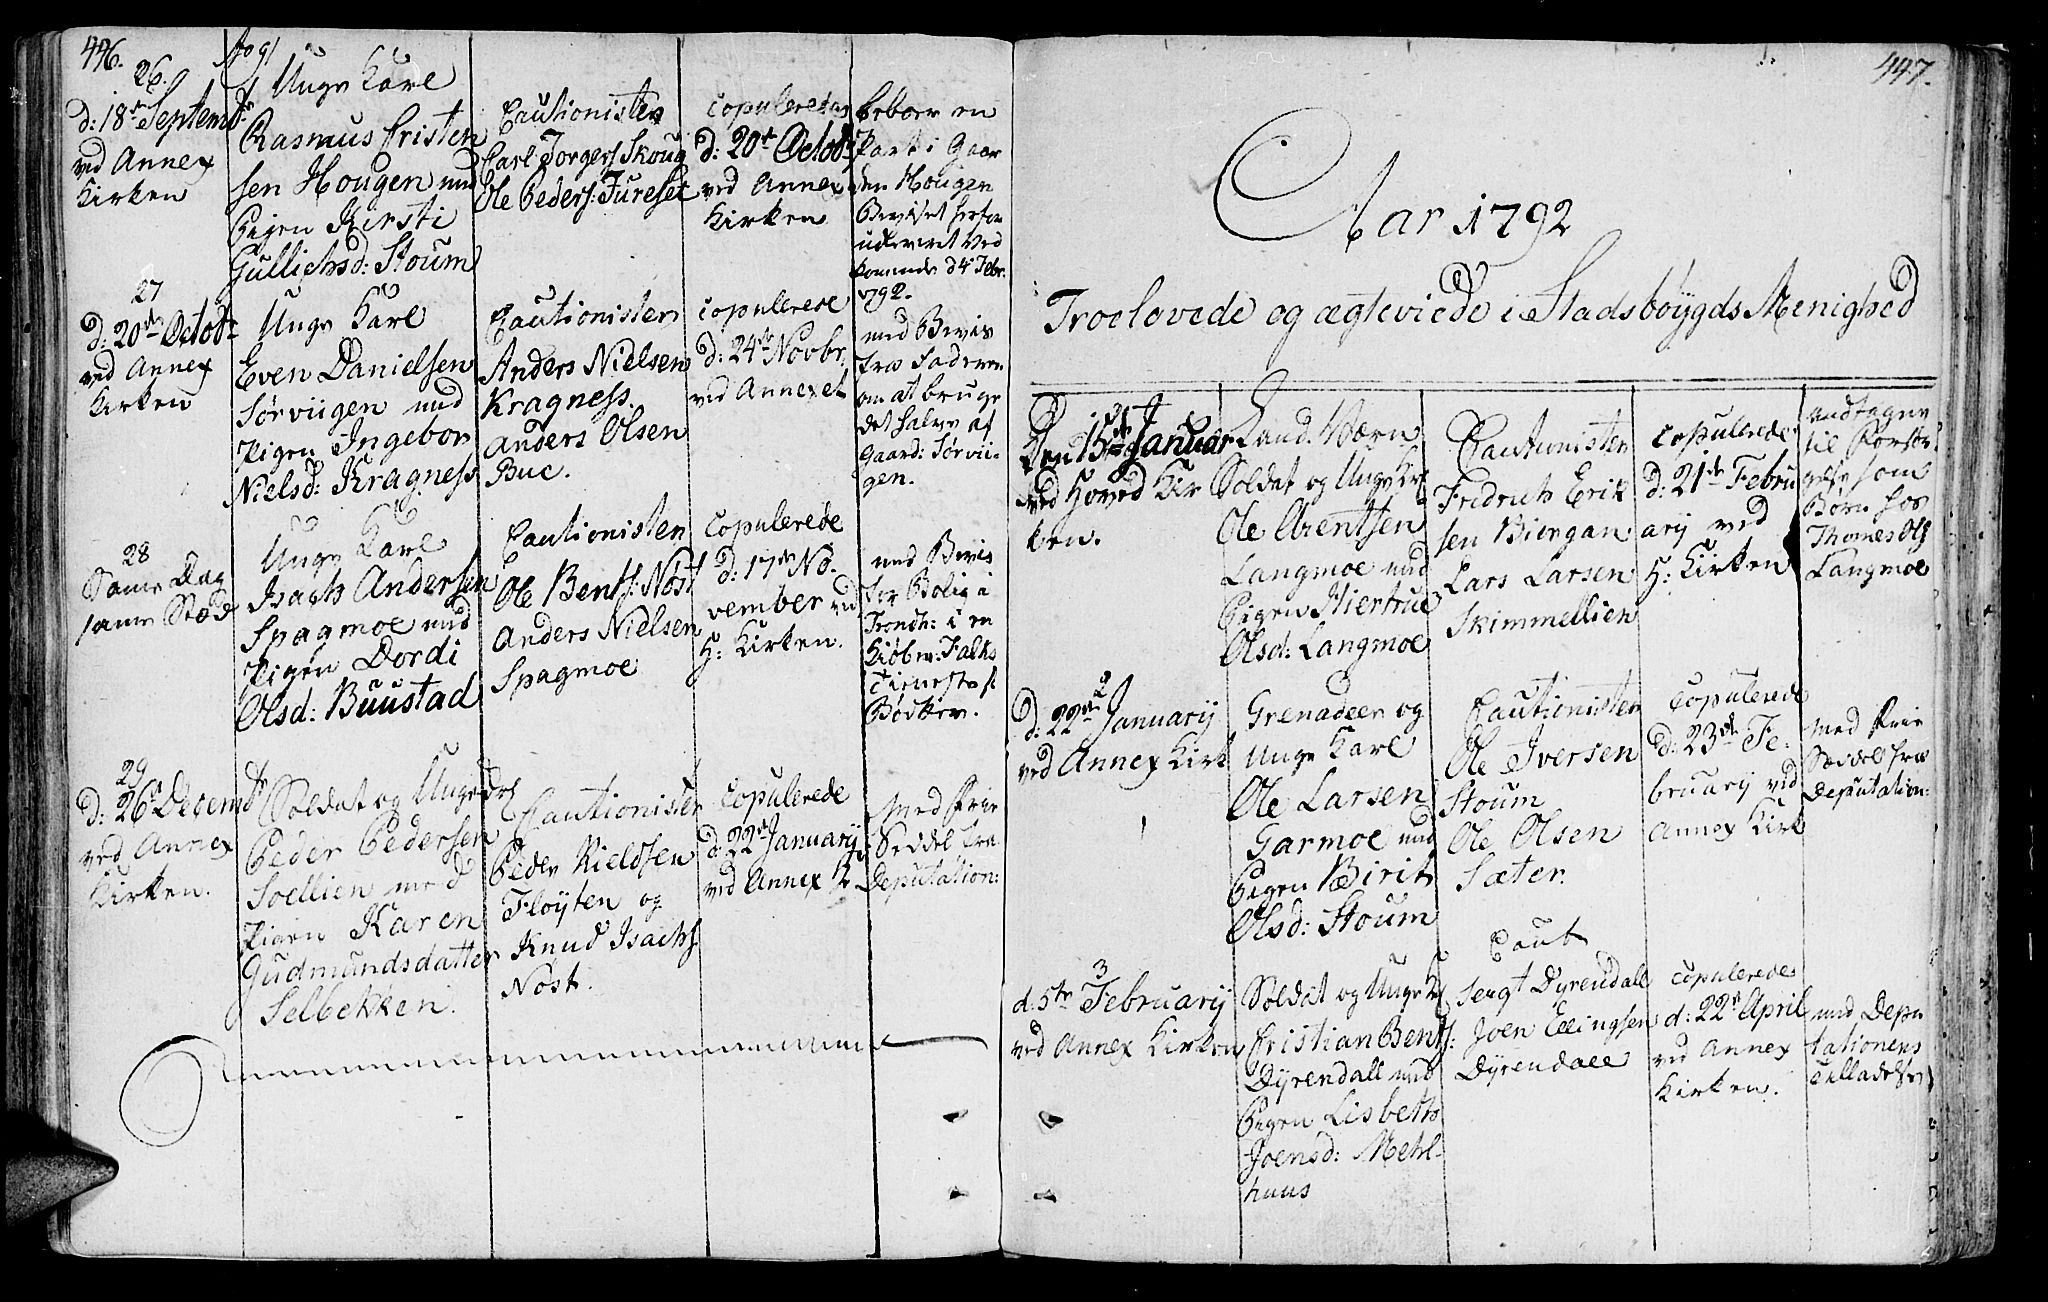 446.
Ao 91
26.
d: 18de Septembr
ved Annex
Kirken
Unge Karl
Rasmus Cristen
sen Hougen med
Pigen Kirsti
Gullichsd: Stoum
Cautionister
Carl Jörgers Skoug
Ole Peders: Jureset
copulerede
d: 20de Octobr
ved Annex
Kirken
beboer en
Part i Gaar
den Hougen
Beviset herfor
udleveret ved
kommende d 4 Febr:
1792.
27
d: 20de Octobr
ved Annex
Kirken
Unge Karl
Even Danielsen
Sørviigen med
Pigen Ingebor
Nielsd: Kragness
Cautionister
Anders Nielsen
Kragness.
Anders Olsen
Bue.
copulerede
d: 24de Novbr.
ved Annexet
med Bevis
fra Faderen
om at bruge
det halve af
Gaard: Sørvii-
gen.
28
Same Dag
same Stæd
Unge Karl
Isach Andersen
Spagmoe med
Pigen Dordi
Olsd: Buustad
Cautionister
Ole Bents: Nöst
Anders Nielsen
Spagmoe
Copulerede
d: 17de No-
vember ved
H: Kirken.
med Bevis
for Bolig i
Trondh: i en
Kiöbm: Falks
Tieneste
Bödker.
29
d: 26de Decembr
ved Annex
Kirken.
Soldat og Unge Karl
Peder Pedersen
Soellien med
Pigen Karen
Gudmundsdatter
Selbekken.
Cautionister
Peder Kieldsen
Flöyten og
Knud Isachs
Nöst.
copulerede
d: 22de January
ved Annex K
Med Frie
Seddel fra
Deputation:
447.
Aar 1792
Troelovede og ægteviede i Stadsböygds Menighed
1
Den 15de Januar
ved Hoved Kir
ken.
Land Værn
Soldat og Unge Karl
Ole Arentsen
Langmoe med
Pigen Hiertrue
Olsd: Langmoe
Cautionister
Fredrich Erik
sen Biørgan
Lars Larsen
Skimmellien
copulerede
d: 21de Febru
ary ved
H: Kirken
undtagne
til Forsør
gelse som
Børn hos
Thomes Ols
Langmoe
2
d: 22de January
ved Annex Kirk
Grenadeer og
Unge Karl
Ole Larsen
Garmoe med
Pigen Birit
Olsd: Stoum
Cautionister
Ole Iversen
Stoum
Ole Olsen
Sæter.
copulerede
d: 23de Fe-
bruary ved
Annex Kirk
Med Frie
Seddel fra
Deputation:
3
d. 5te February
ved Annex Kirken
Soldat og Unge K
Cristian Bents:
Dyrendall med
Pigen Lisbeth
Joensd: Mehl-
huus
Caut
Sergt Dyrendall
Joen Ellingsen
Dyrendall
copulerede
d: 22de April
ved Annex
Kirken.
med Depu
tationens
Tilladelse